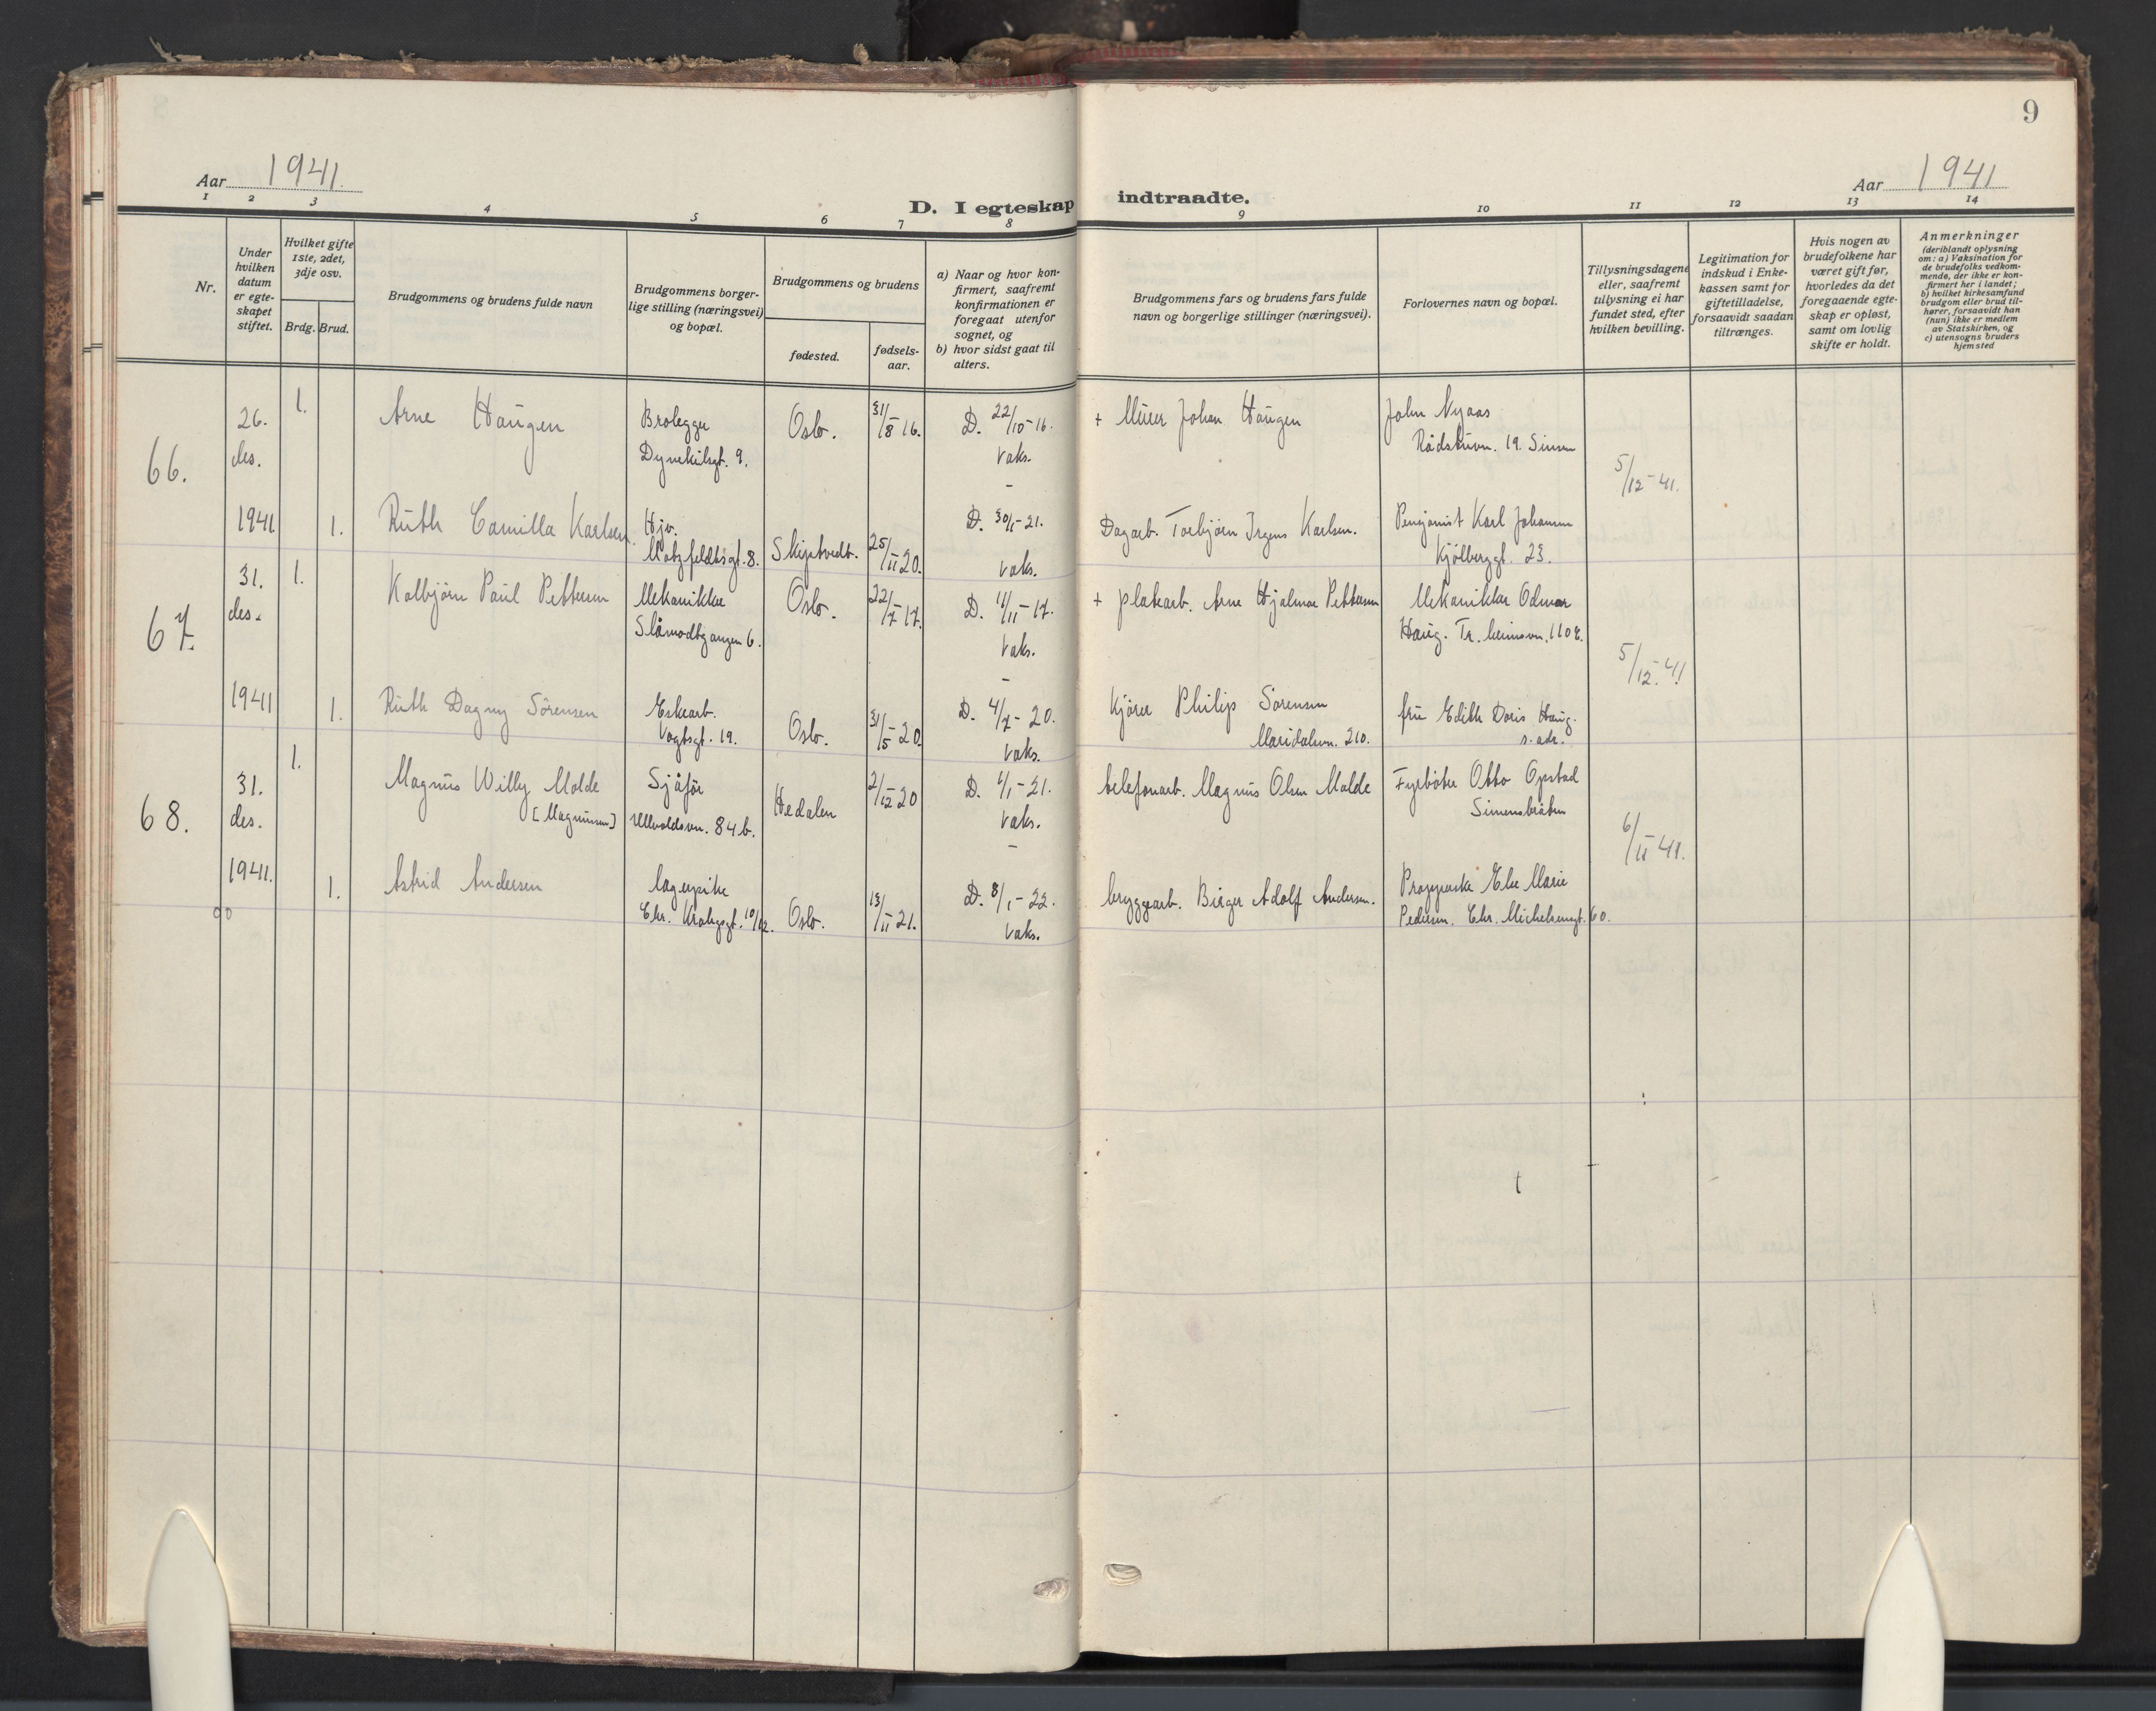 9
Aar 1941.
D. I egteskap indtraadte.
Aar 1941
1 2 3 4 5 6 7 8 9 10 11 12 13 14
Nr.
Under
hvilken
datum
er egte-
skapet
stiftet.
Hvilket gifte
1ste, 2det,
3dje osv.
Brdg. Brud.
Brudgommens og brudens fulde navn
Brudgommens borger-
lige stilling (næringsvei)
og bopæl.
Brudgommens og brudens
fødested.
fødsels-
aar.
a) Naar og hvor kon-
firmert, saafremt
konfirmationen er
foregaat utenfor
sognet, og
b) hvor sidst gaat til
alters.
Brudgommens fars og brudens fars fulde
navn og borgerlige stillinger (næringsvei).
Forlovernes navn og bopæl.
Tillysningsdagene
eller, saafremt
tillysning ei har
fundet sted, efter
hvilken bevilling.
Legitimation for
indskud i Enke-
kassen samt for
giftetilladelse,
forsaavidt saadan
tiltrænges.
Hvis nogen av
brudefolkene har
været gift før,
hvorledes da det
foregaaende egte-
skap er opløst,
samt om lovlig
skifte er holdt.
Anmerkninger
(deriblandt oplysning
om: a) Vaksination for
de brudefolks vedkom-
mende, der ikke er kon-
firmert her i landet;
b) hvilket kirkesamfund
brudgom eller brud til-
hører, forsaavidt han
(hun) ikke er medlem
av Statskirken, og
c) utensogns bruders
hjemsted
66.
26.
des.
1941
1.
Arne Haugen
Brolegger
Dynekilsgt. 9.
Oslo.
31/8-16.
D. 22/10-16.
vaks.
-
+ Murer Johan Haugen
John Nyaas
Rådstuvn. 19. Sinsen
5/12-41.
1.
Ruth Camilla Karlsen.
Hjv.
Motzfeldtsgt. 8.
Skiptvedt.
25/11-20.
D. 30/1-21.
vaks.
Dagarb. Torbjørn Irgens Karlsen.
Pensjonist Karl Johansen
Kjølberggt. 23.
67.
31.
des.
1941
1.
Kolbjørn Paul Pettersen
Mekaniker
Slåmodtgangen 6.
Oslo.
22/7-17.
D. 4/11-17.
vaks.
-
+ platearb. Arne Hjalmar Pettersen
Mekaniker Odmar
Haug. Tr.heimsvn. 110 E.
5/12-41
1.
Ruth Dagny Sörensen
Eskearb.
Vogtsgt. 19.
Oslo.
31/5-20.
D. 4/7-20.
vaks.
Kjører Philip Sörensen
Maridalsvn. 210.
fru Edith Doris Haug.
s. adr.
68.
31.
des.
1941.
1.
Magnus Willy Molde
[Magnussen]
Sjåfør
Ullevoldsvn. 84 b.
Hedalen
2/12-20
D. 6/1-21.
vaks.
-
telefonarb. Magnus Olsen Molde
Fyrbøter Otto Opstad
Simensbråten
6/11-41.
1.
Astrid Andersen
lagerpike
Chr. Krohgsgt. 10/12.
Oslo.
13/11-21.
D. 8/1-22.
vaks.
bryggearb. Birger Adolf Andersen.
Else Marie
Pedersen. Chr. Michelsensgt. 60.